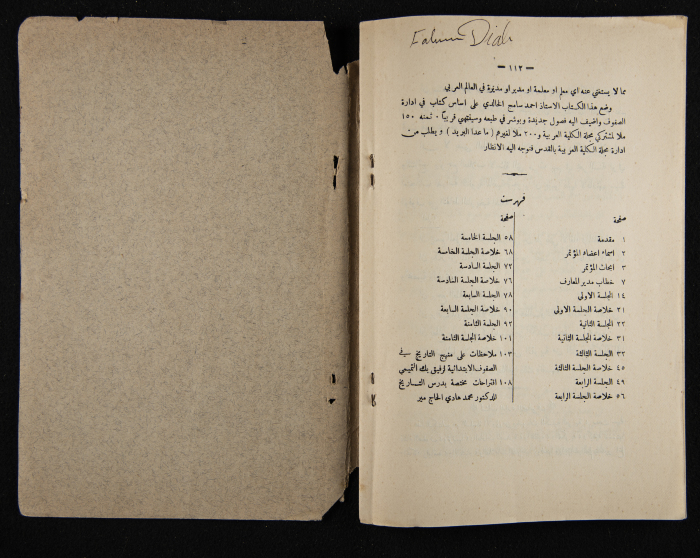 Diab
— ١١٢ —
مما لا يستغني عنه اي معلم او معلمة او مدير او مديرة في العالم العربي
وضع هذا الكتاب الاستاذ احمد سامح الخالدي على اساس كتاب في ادارة
الصفوف واضيف اليه فصول جديدة وبوشر في طبعه وسينتهي قريباً ٠ ثمنه ١٥٠
ملا لمشتركي مجلة الكلية العربية و ٢٠٠ ملا لغيرهم ( ما عدا البريد ) و يطلب من
ادارة مجلة الكلية العربية بالقدس فنوجه اليه الانظار
فهرست
صفحة
١ مقدمة
٢ اسماء اعضاء المؤتمر
٣ ابحاث المؤتمر
٧ خطاب مدير المعارف
١٤ الجلسة الاولى
٢١ خلاصة الجلسة الاولى
٢٢ الجلسة الثانية
٣١ خلاصة الجلسة الثانية
٣٢ الجلسة الثالثة
٤٥ خلاصة الجلسة الثالثة
٤٩ الجلسة الرابعة
٥٦ خلاصة الجلسة الرابعة
صفحة
٥٨ الجلسة الخامسة
٦٨ خلاصة الجلسة الخامسة
٧٢ الجلسة السادسة
٧٦ خلاصة الجلسة السادسة
٧٨ الجلسة السابعة
٩٠ خلاصة الجلسة السابعة
٩٢ الجلسة الثامنة
١٠١ خلاصة الجلسة الثامنة
١٠٣ ملاحظات على منهج التاريخ في
الصفوف الابتدائية لرفيق بك التميمي
١٠٨ اقتراحات مختصة بدرس التاريخ
للدكتور محمد هادي الحاج مير